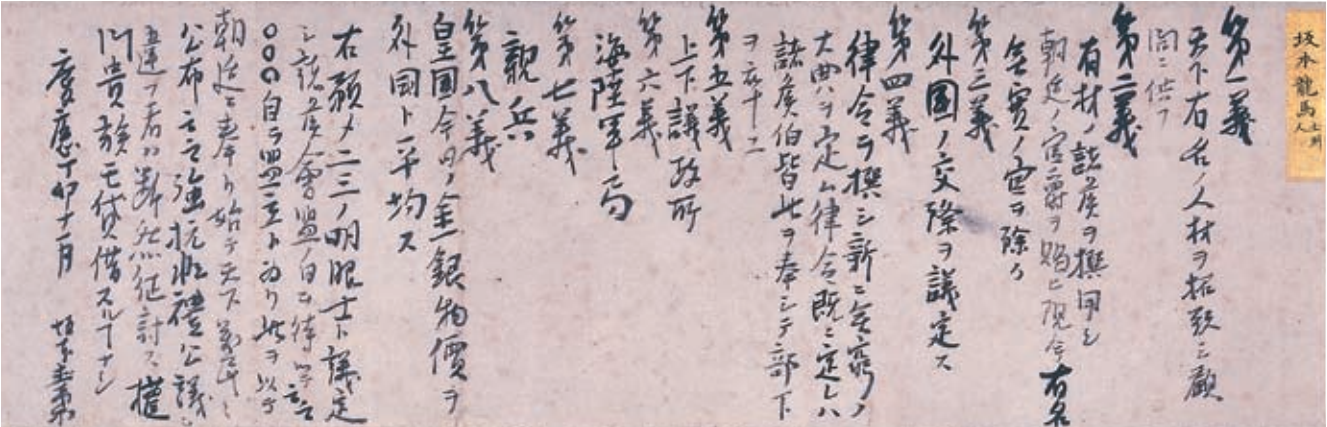 坂本龍馬 土州人
第一義
天下有名ノ人材ヲ招致シ顧
問ニ供フ
第二義
有材ノ諸侯ヲ撰用シ
朝廷ノ官爵ヲ賜ヒ現今有名
無實ノ官ヲ除ク
第三義
外國ノ交際ヲ議定ス
第四義
律令ヲ撰シ新ニ無窮ノ
大典ヲ定ム律令既ニ定レハ
諸侯伯皆此ヲ奉シテ部下
ヲ率ス
第五義
上下議政所
第六義
海陸軍局
第七義
親兵
第八義
皇國今日ノ金銀物價ヲ
外國ト平均ス
右預メ二三ノ明眼士ト議定
シ諸侯會盟ノ日ヲ待ツテ云云
○○○自ラ盟主ト為リ此ヲ以テ
朝廷ニ奉リ始テ天下萬民ニ
公布云云強抗非禮公議ニ
違フ者ハ断然征討ス權
門貴族モ貸借スルヿナシ
慶應丁卯十一月 坂本直柔